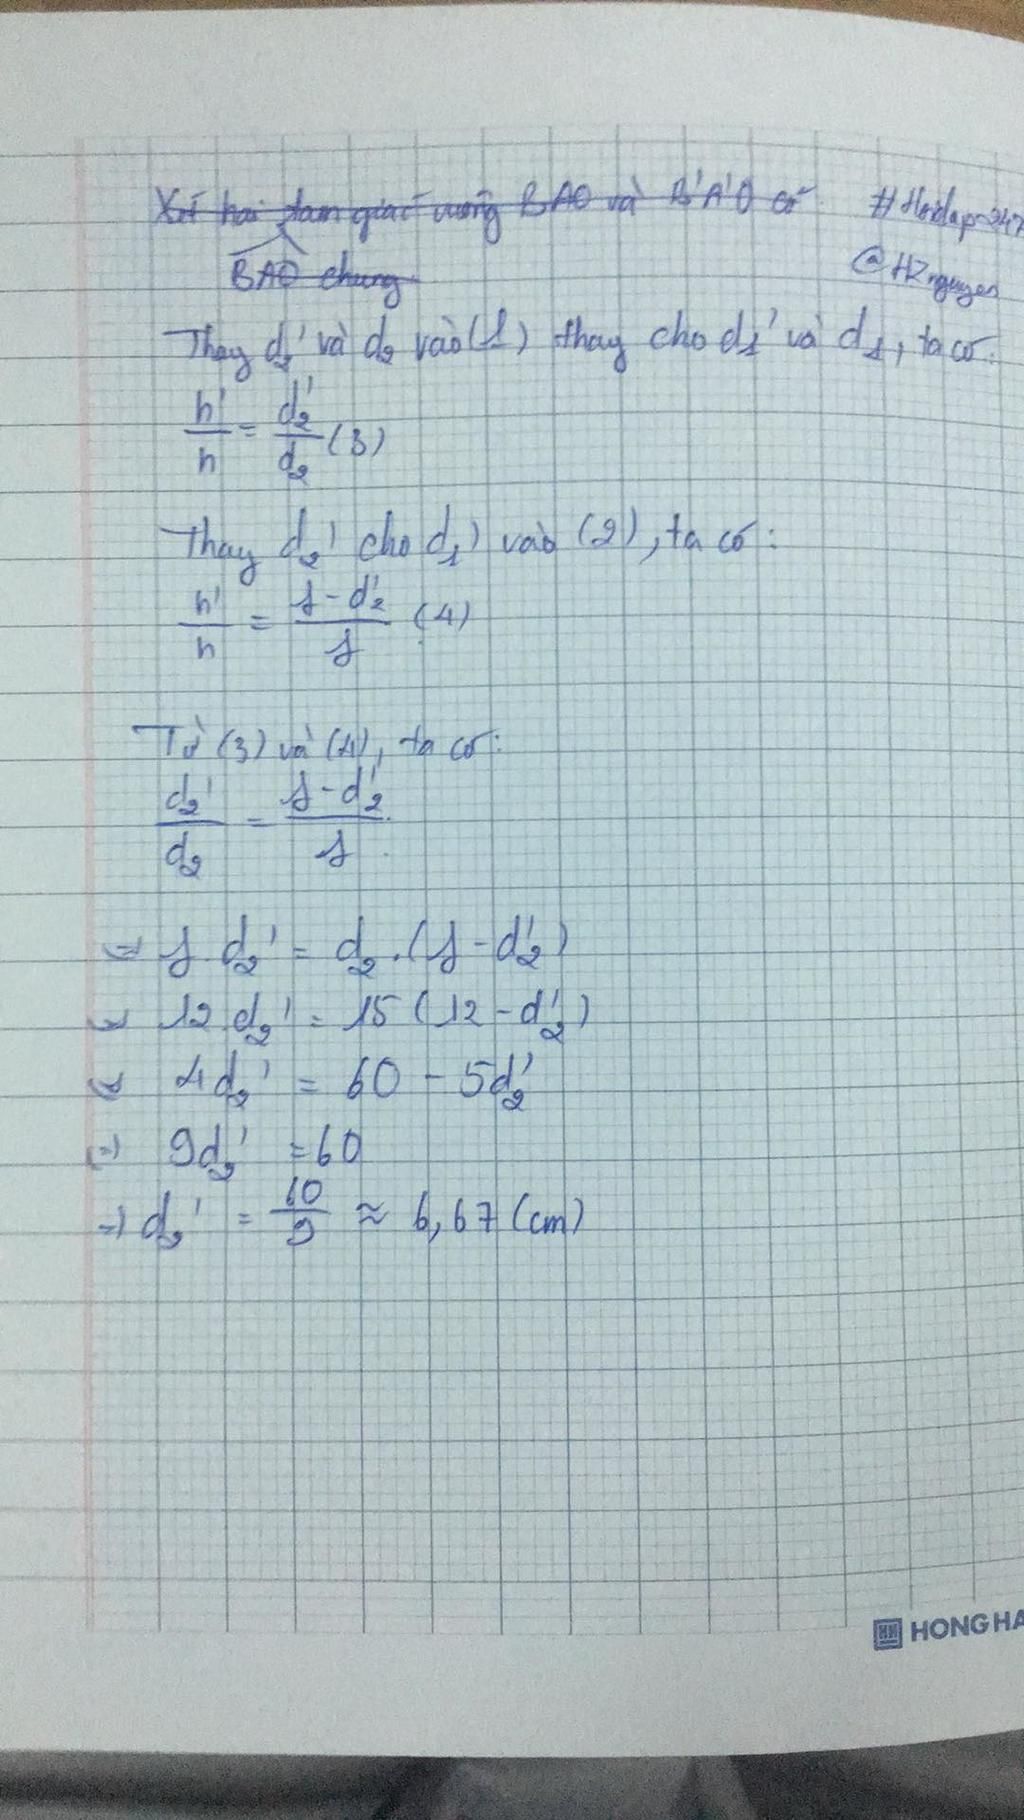 Xét hai tam giác vuông BAO và B'A'O có
#Hoidap247
BAO chung
@HZnguyen
Thay d₂' và d₂ vào (1) thay cho d₁' và d₁, ta có:
h'/h = d₂'/d₂ (3)
Thay d₂' cho d₁' vào (2), ta có:
h'/h = (f - d₂')/f (4)
Từ (3) và (4), ta có:
d₂'/d₂ = (f - d₂')/f
⇒ f.d₂' = d₂.(f - d₂')
⇒ 12.d₂' = 15(12 - d₂')
⇒ 4d₂' = 60 - 5d₂'
⇒ 9d₂' = 60
⇒ d₂' = 60/9 ≈ 6,67 (cm)
HONG HA